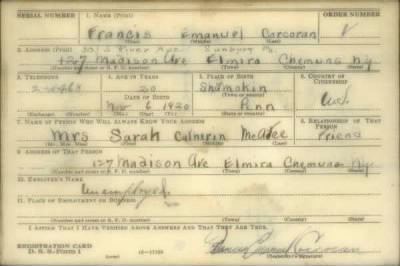 SERIAL NUMBER 1. NAME (Print) ORDER NUMBER
Francis Emanuel Corcoran
(First) (Middle) (Last)
2. ADDRESS (Print) River Ave Sunbury Pa.
127 Madison Ave Elmira Chemung N.Y.
(Number and street or R. F. D. number) (Town) (County) (State)
3. TELEPHONE 4. AGE IN YEARS 5. PLACE OF BIRTH 6. COUNTRY OF CITIZENSHIP
20 Shamokin
DATE OF BIRTH (Town or county)
Nov 6 1920 Penn U.S.
(Exchange) (Number) (Mo.) (Day) (Yr.) (State or country)
7. NAME OF PERSON WHO WILL ALWAYS KNOW YOUR ADDRESS 8. RELATIONSHIP OF THAT PERSON
Mrs Sarah McAtee Friend
(Mr., Mrs., Miss) (First) (Middle) (Last)
9. ADDRESS OF THAT PERSON
127 Madison Ave Elmira Chemung N.Y.
(Number and street or R. F. D. number) (Town) (County) (State)
10. EMPLOYER'S NAME
Unemployed
11. PLACE OF EMPLOYMENT OR BUSINESS
(Number and street or R. F. D. number) (Town) (County) (State)
I AFFIRM THAT I HAVE VERIFIED ABOVE ANSWERS AND THAT THEY ARE TRUE.
REGISTRATION CARD
D. S. S. Form 1 (over) Francis Emanuel Corcoran
(Registrant's signature)